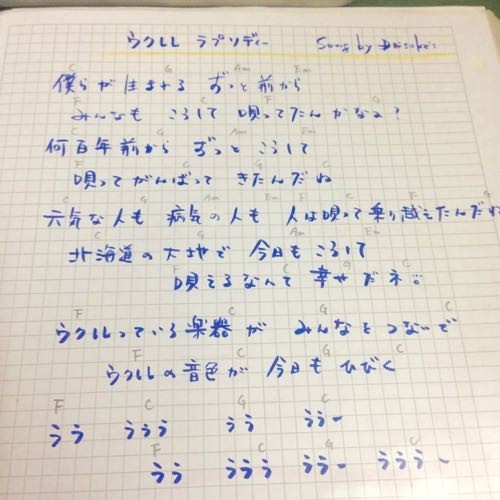 ウクレレ ラプソディー Song by Daisuke
C G Am Em
僕らが生まれる ずっと前から
F C F G
みんなも こうして 唄ってたんかなぁ?
C G Am Em
何百年前から ずっと こうして
F C G C
唄ってがんばって きたんだね
C G Am Em F C F G
元気な人も 病気の人も 人は唄って乗り越えたんだね
C G Am Em
北海道の大地で 今日もこうして
F C G C
唄えるなんて 幸せだネ。
F C G C
ウクレレっている楽器が みんなをつないで
F C G C
ウクレレの音色が 今日も ひびく
F C G C
うう ううう うう ううー
F C G C
うう ううう ううー うううー